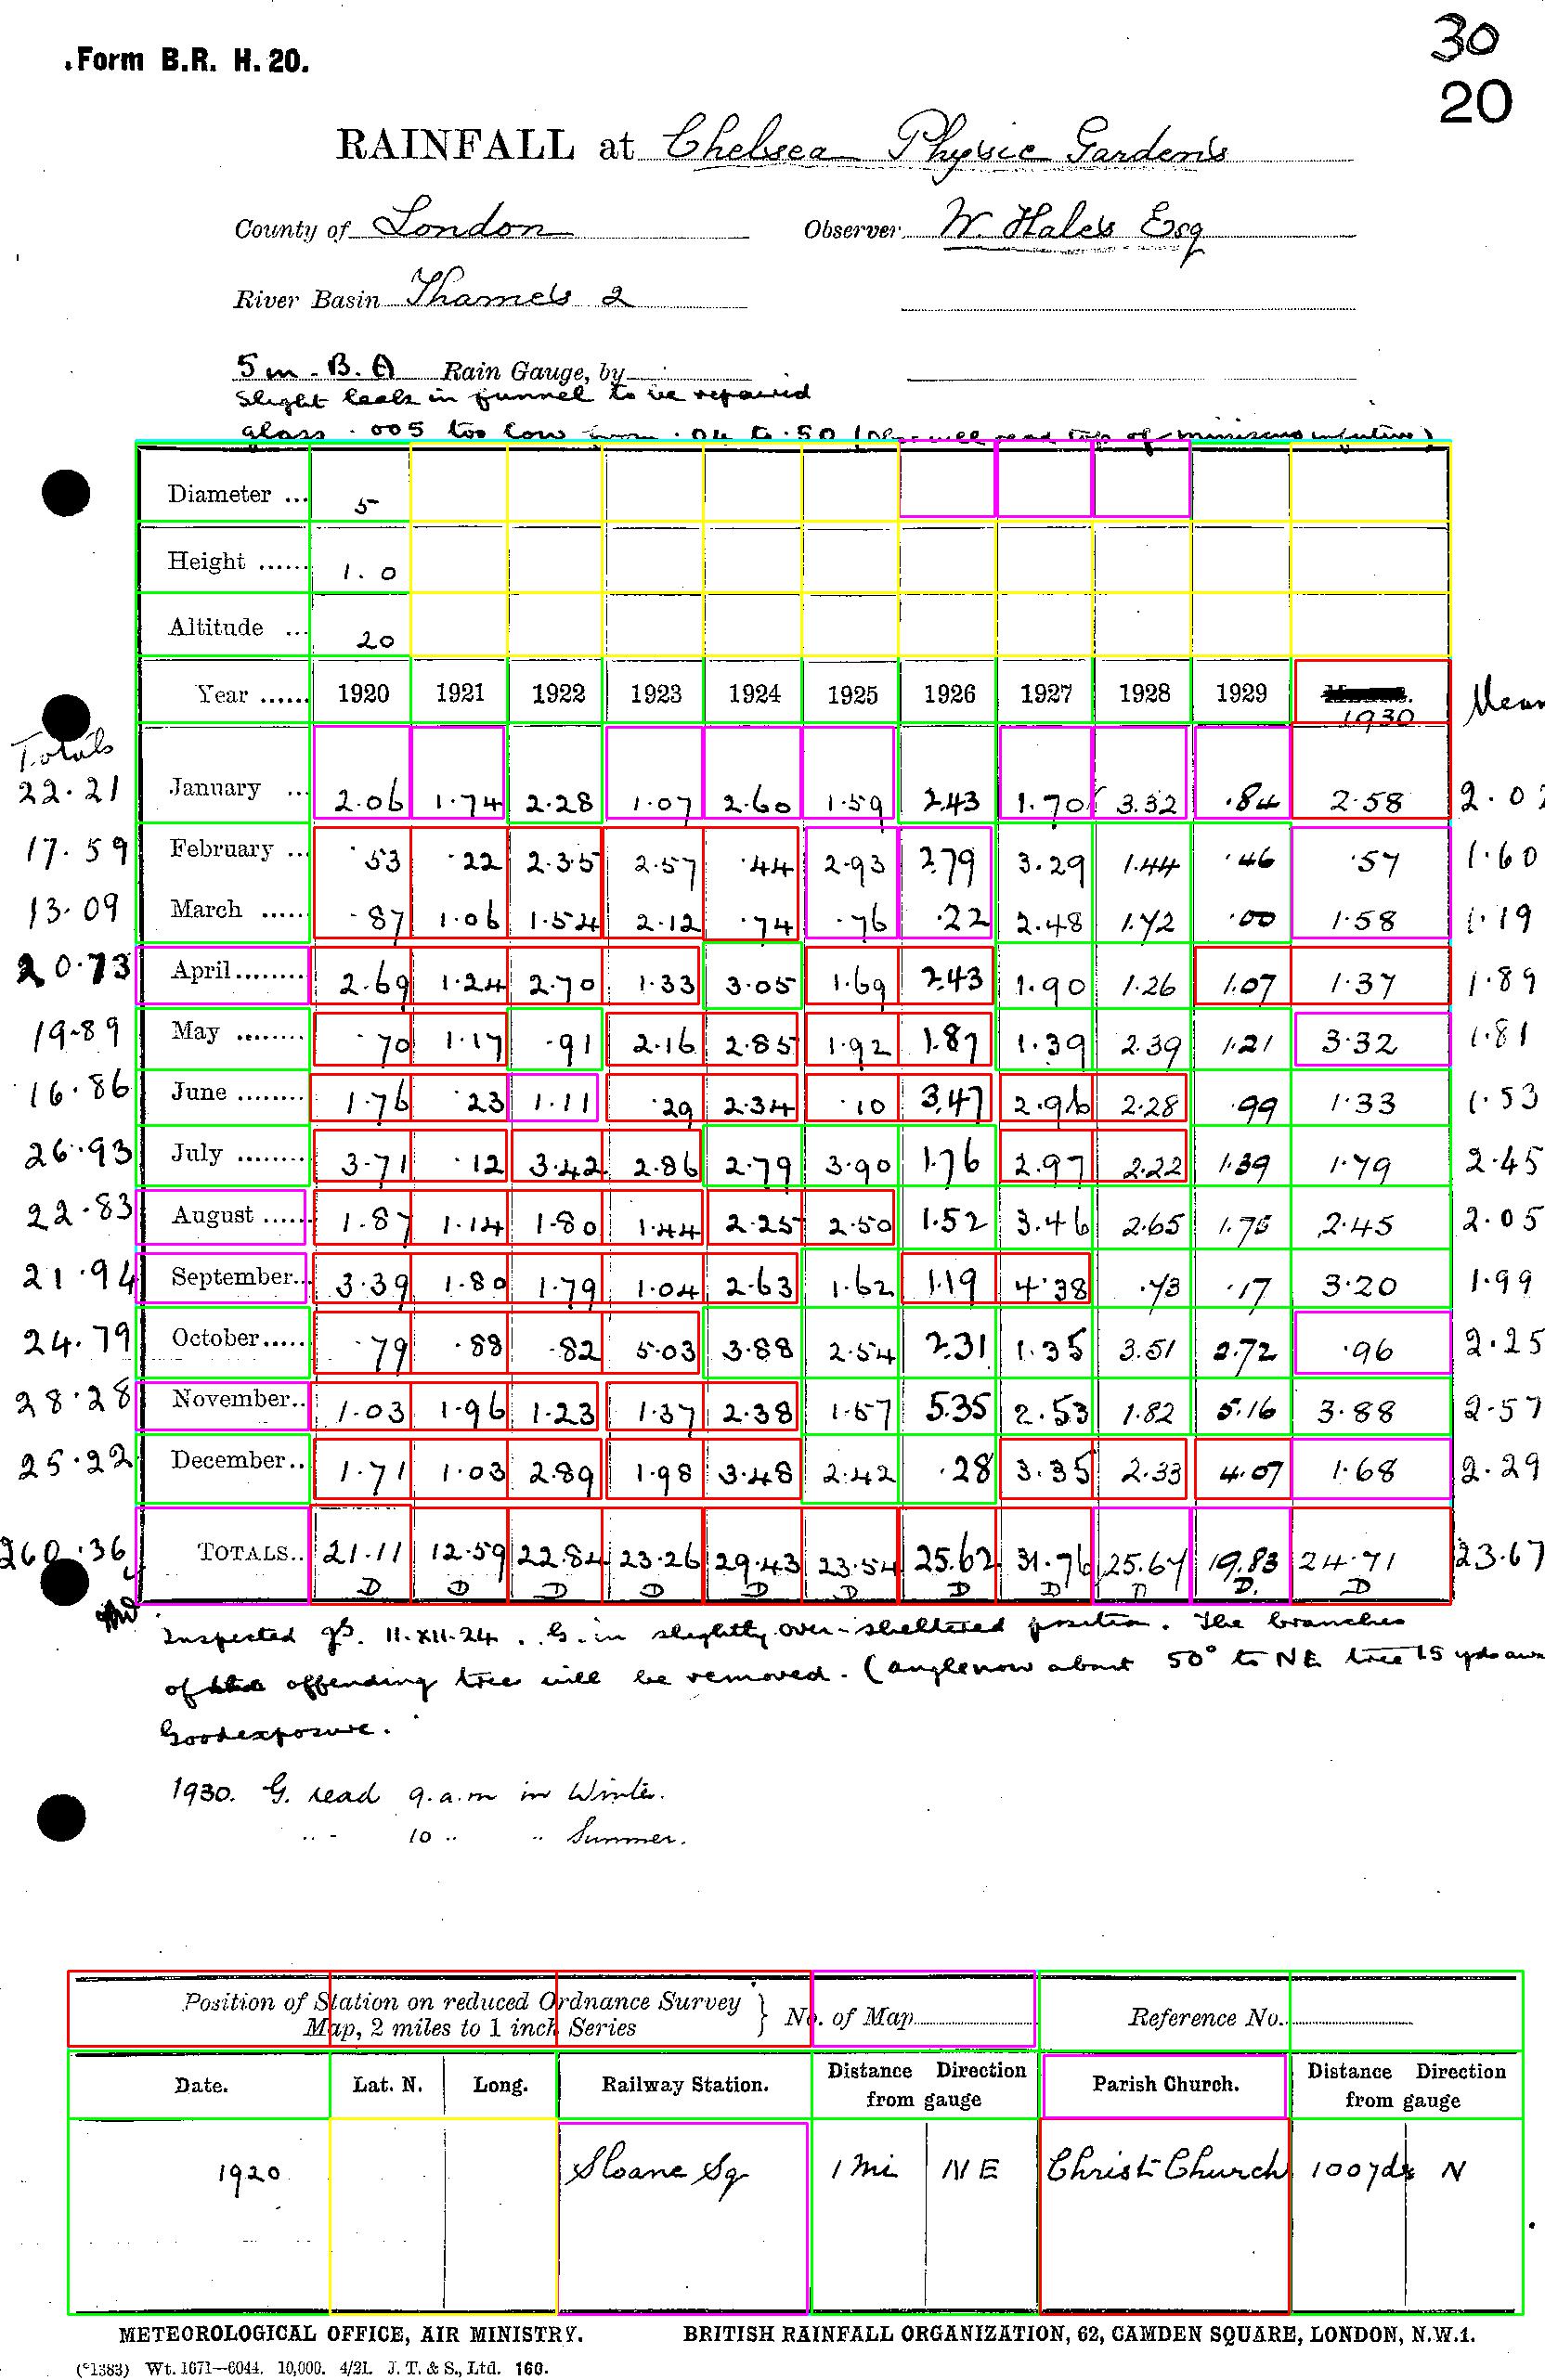 30
Form B.R. H. 20.
20
RAINFALL at Chelsea Physic Gardens
County of London Observer W. Hales Esq
River Basin Thames 2
5 in. B. A Rain Gauge, by
Slight leak in funnel to be repaired
glass .005 too low from .04 to .50 (Obs will read top of miniscus in future)
Diameter ... 5
Height ...... 1.0
Altitude ... 20
Year ...... 1920 1921 1922 1923 1924 1925 1926 1927 1928 1929 1930 Mean
Totals
22.21 January ... 2.06 1.74 2.28 1.07 2.60 1.59 2.43 1.70 3.32 .84 2.58 2.02
17.59 February ... .53 .22 2.35 2.57 .44 2.93 2.79 3.29 1.44 .46 .57 1.60
13.09 March ..... .87 1.06 1.54 2.12 .74 .76 .22 2.48 1.72 .00 1.58 1.19
20.73 April........ 2.69 1.24 2.70 1.33 3.05 1.69 2.43 1.90 1.26 1.07 1.37 1.89
19.89 May ........ .70 1.17 .91 2.16 2.85 1.92 1.87 1.39 2.39 1.21 3.32 1.81
16.86 June ........ 1.76 .23 1.11 .29 2.34 .10 3.47 2.96 2.28 .99 1.33 1.53
26.93 July ........ 3.71 .12 3.42 2.86 2.79 3.90 1.76 2.97 2.22 1.39 1.79 2.45
22.83 August ...... 1.87 1.14 1.80 1.44 2.25 2.50 1.52 3.46 2.65 1.75 2.45 2.05
21.94 September... 3.39 1.80 1.79 1.04 2.63 1.62 1.19 4.38 .73 .17 3.20 1.99
24.79 October..... .79 .88 .82 5.03 3.88 2.54 2.31 1.35 3.51 2.72 .96 2.25
28.28 November.. 1.03 1.96 1.23 1.37 2.38 1.57 5.35 2.53 1.82 5.16 3.88 2.57
25.22 December.. 1.71 1.03 2.89 1.98 3.48 2.42 .28 3.35 2.33 4.07 1.68 2.29
260.36 TOTALS.. 21.11 12.59 22.84 23.26 29.43 23.54 25.62 31.76 25.67 19.83 24.71 23.67
D D D D D D D D D D. D
Inspected 11.XII.24. G. in slightly over-sheltered position. The branches
of offending tree will be removed. (angle now about 50° to NE tree 15 yds
Good exposure.
1930. G. read 9.a.m in Winter.
.. - 10 .. .. Summer.
Position of Station on reduced Ordnance Survey
Map, 2 miles to 1 inch Series } No. of Map Reference No.
Date. Lat. N. Long. Railway Station. Distance Direction from gauge Parish Church. Distance Direction from gauge
1920 Sloane Sq 1 mi NE Christ Church 100yds N
METEOROLOGICAL OFFICE, AIR MINISTRY. BRITISH RAINFALL ORGANIZATION, 62, CAMDEN SQUARE, LONDON, N.W.1.
(*1383) Wt. 1671—6044. 10,000. 4/21. J. T. & S., Ltd. 160.